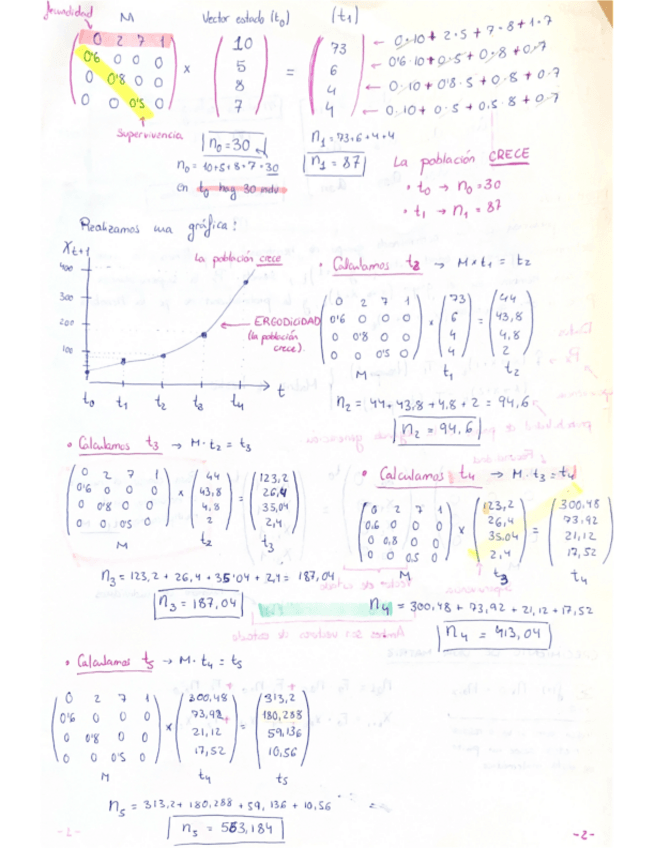 fecundidad M Vector estado (t₀) (t₁)
0 2 7 1
0'6 0 0 0
0 0'8 0 0
0 0 0'5 0
x
10
5
8
7
=
73
6
4
4
← 0·10 + 2·5 + 7·8 + 1·7
← 0'6·10 + 0·5 + 0·8 + 0·7
← 0·10 + 0'8·5 + 0·8 + 0·7
← 0·10 + 0·5 + 0,5·8 + 0·7
Supervivencia
n₀ = 30
n₀ = 10+5+8+7=30
en t₀ hay 30 indv
n₁ = 73+6+4+4
n₁ = 87
La población CRECE
• t₀ → n₀ = 30
• t₁ → n₁ = 87
Realizamos una gráfica:
Xt+1
400
300
200
100
La población crece
← ERGODICIDAD
(la población
crece).
t₀ t₁ t₂ t₃ t₄ t
• Calculamos t₂ → M×t₁ = t₂
0 2 7 1
0'6 0 0 0
0 0'8 0 0
0 0 0'5 0
x
73
6
4
4
=
44
43,8
4,8
2
M t₁ t₂
n₂ = 44 + 43,8 + 4,8 + 2 = 94,6
n₂ = 94,6
• Calculamos t₃ → M·t₂ = t₃
0 2 7 1
0'6 0 0 0
0 0'8 0 0
0 0 0'5 0
x
44
43,8
4,8
2
=
123,2
26,4
35,04
2,4
M t₂ t₃
n₃ = 123,2 + 26,4 + 35'04 + 2,4 = 187,04
n₃ = 187,04
• Calculamos t₄ → M·t₃ = t₄
0 2 7 1
0,6 0 0 0
0 0,8 0 0
0 0 0,5 0
x
123,2
26,4
35.04
2,4
=
300,48
73,92
21,12
17,52
M t₃ t₄
n₄ = 300,48 + 73,92 + 21,12 + 17,52
n₄ = 413,04
• Calculamos t₅ → M·t₄ = t₅
0 2 7 1
0'6 0 0 0
0 0'8 0 0
0 0 0'5 0
x
300,48
73,92
21,12
17,52
=
313,2
180,288
59,136
10,56
M t₄ t₅
n₅ = 313,2 + 180,288 + 59,136 + 10,56 =
n₅ = 563,184
-2-